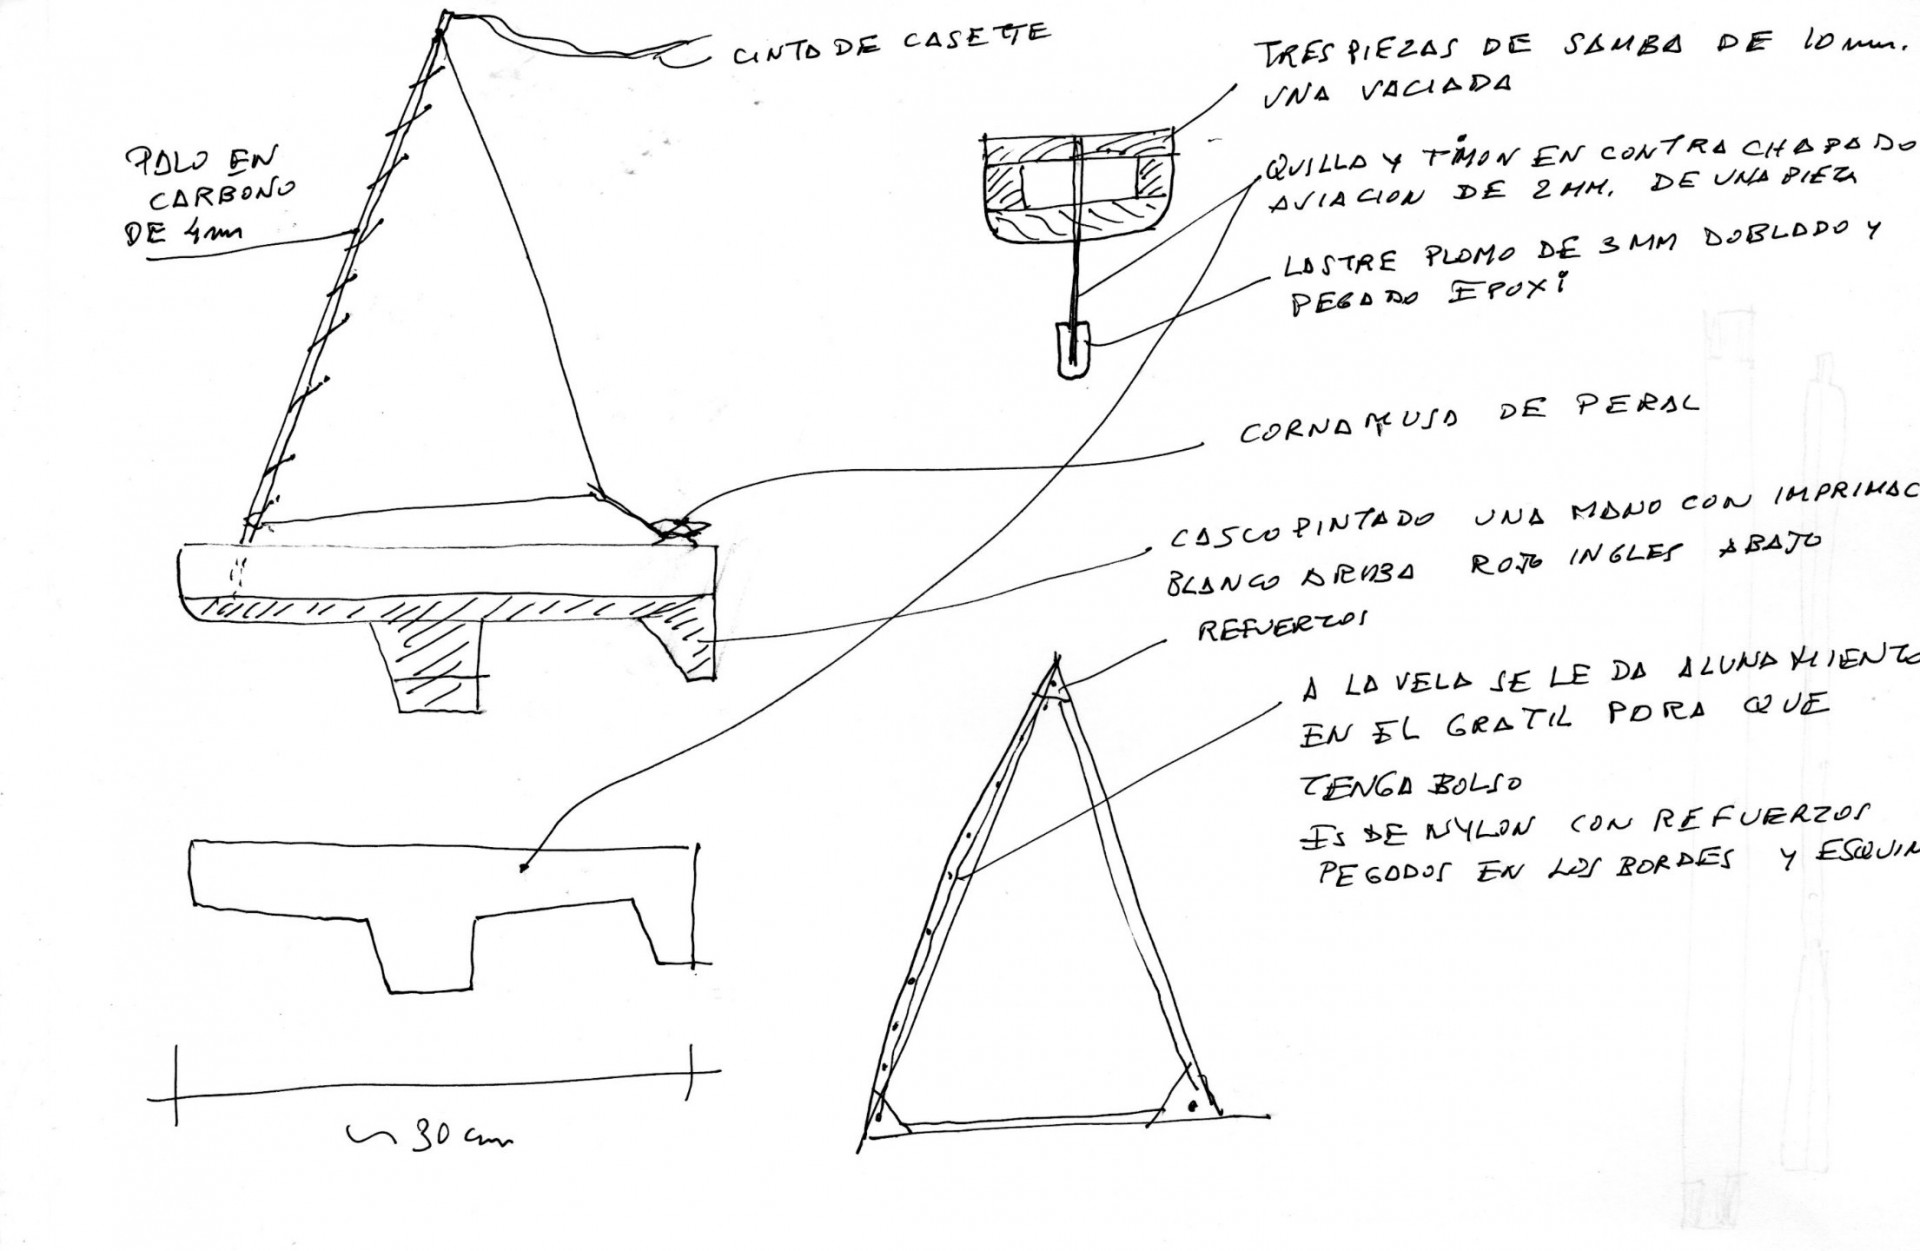 CINTA DE CASETTE
PALO EN
CARBONO
DE 4mm
TRES PIEZAS DE SAMBA DE 10 mm.
UNA VACIADA
QUILLA Y TIMON EN CONTRA CHAPADO
AVIACION DE 2 MM. DE UNA PIEZA
LASTRE PLOMO DE 3 MM DOBLADO Y
PEGADO EPOXI
CORNAMUSA DE PERAL
CASCO PINTADO UNA MANO CON IMPRIMAC
BLANCO ARRIBA ROJO INGLES ABAJO
REFUERZOS
A LA VELA SE LE DA ALUNAMIENTO
EN EL GRATIL PARA QUE
TENGA BOLSO
ES DE NYLON CON REFUERZOS
PEGADOS EN LOS BORDES Y ESQUIN
~30 cm